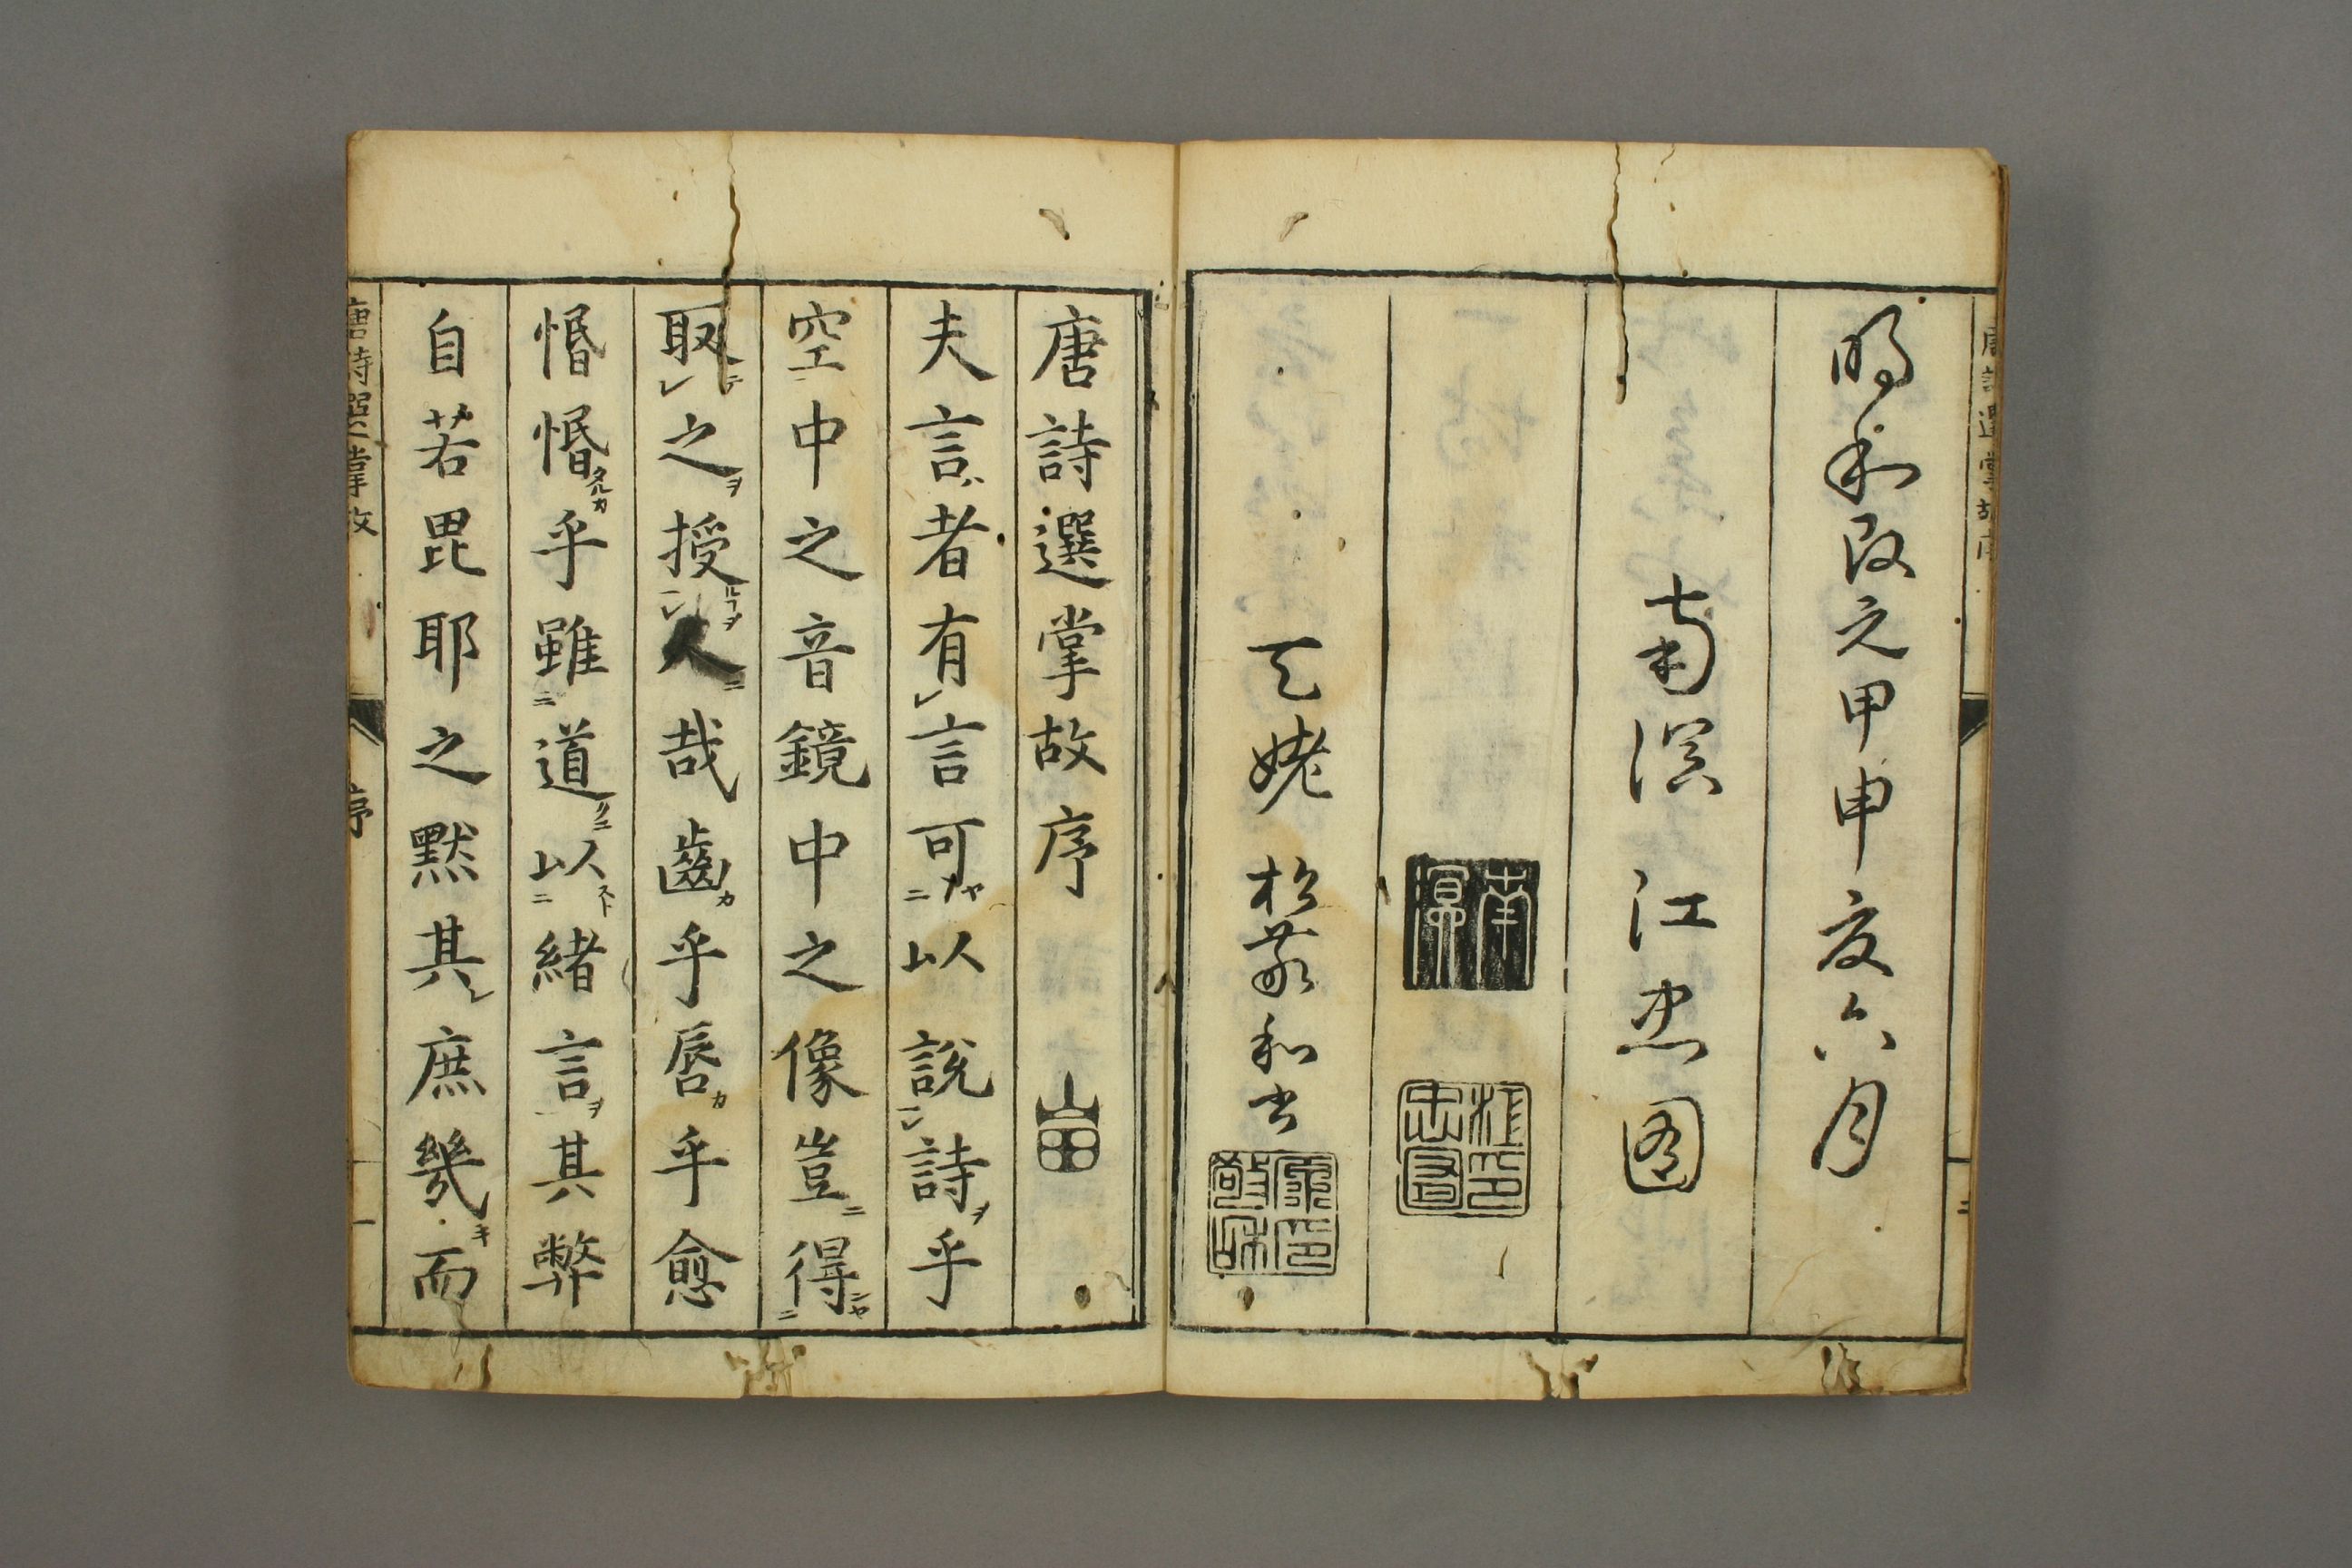 明和改元甲申夏六月
南溟江忠囿
天姥松敬和書
唐詩選掌故序
夫言者有言可以説詩乎
空中之音鏡中之像豈得
取之授人哉齒乎唇乎愈
惛惛乎雖道以緒言其弊
自若毘耶之默其庶幾而
唐詩選掌故
序
一